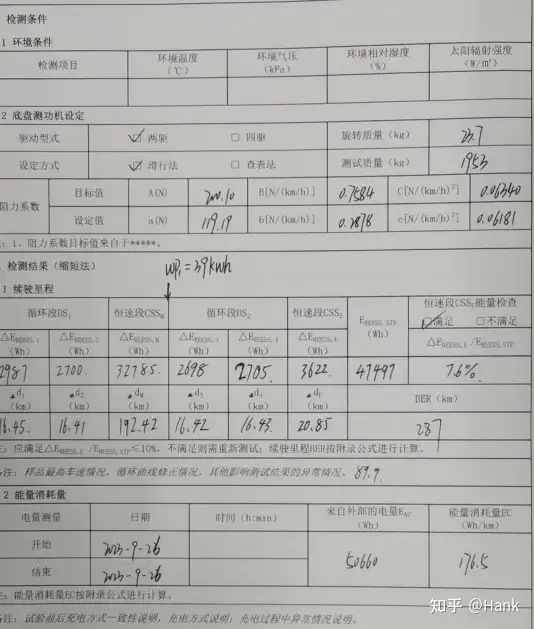 检测条件
1 环境条件
检测项目 环境温度(℃) 环境气压(kPa) 环境相对湿度(%) 太阳辐射强度(W/m²)
2 底盘测功机设定
驱动型式 ☑ 两驱 □ 四驱 旋转质量(kg) 23.7
设定方式 ☑ 滑行法 □ 查表法 测试质量(kg) 1953
阻力系数 目标值 A(N) 200.10 B[N/(km/h)] 0.7584 C[N/(km/h)²] 0.06340
设定值 a(N) 119.19 b[N/(km/h)] 0.2878 c[N/(km/h)²] 0.06181
注:1、阻力系数目标值来自于*****。
检测结果(缩短法) =39kwh
1 续驶里程
循环段DS₁ 恒速段CSSM 循环段DS₂ 恒速段CSSE EREESS,STP(Wh) 恒速段CSSE能量检查
☑满足 □不满足
△EREESS,1(Wh) △EREESS,2(Wh) △EREESS,M(Wh) △EREESS,3(Wh) △EREESS,4(Wh) △EREESS,E(Wh) △EREESS,E/EREESS,STP
2987 2700. 32785. 2698 2705. 3622. 47497 7.6%
▲d₁(km) ▲d₂(km) dM(km) ▲d₃(km) ▲d₄(km) dE(km) BER(km)
16.45. 16.41 192.42 16.42 16.43 20.85 287
注:应满足△EREESS,E/EREESS,STP≤10%,不满足则需重新测试;续驶里程BER按附录公式进行计算。
备注:样品最高车速情况,循环曲线修正情况,其他影响测试结果的异常情况。 89.9
2 能量消耗量
电量测量 日期 时间(h:min) 来自外部的电量EAC(Wh) 能量消耗量EC(Wh/km)
开始 2023-9-26 50660 176.5
结束 2023-9-26
注:能量消耗量EC按附录公式进行计算。
备注:试验前后充电方式一致性说明,充电方式说明;充电过程中异常情况说明。
知乎 @Hank